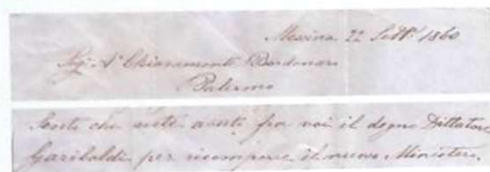 Messina 22 Sett.e 1860
Sig. A. Chiaramonte Bordonaro
Palermo
Sento che avete avuto fra voi il degno Dittatore
Garibaldi per ricomporre il nuovo Ministero,